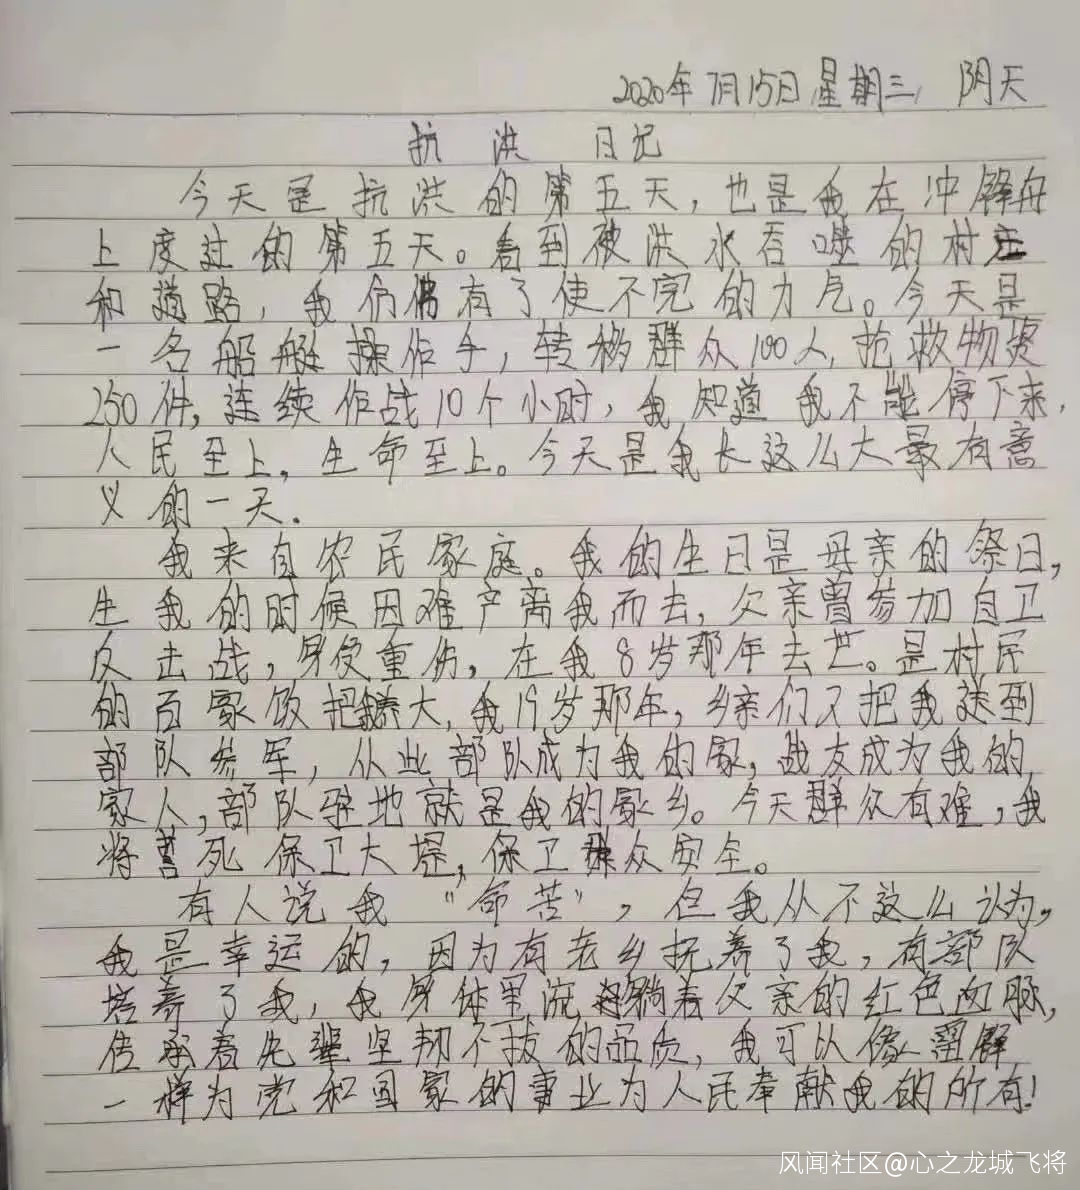 2020年7月15日 星期三 阴天
抗洪日记
今天是抗洪的第五天，也是我在冲锋舟
上度过的第五天。看到被洪水吞噬的村庄
和道路，我仿佛有了使不完的力气。今天是
一名船艇操作手，转移群众100人，抢救物资
250件，连续作战10个小时，我知道我不能停下来，
人民至上，生命至上。今天是我长这么大最有意
义的一天.
我来自农民家庭。我的生日是母亲的祭日，
生我的时候因难产离我而去，父亲曾参加自卫
反击战，身受重伤，在我8岁那年去世。是村民
的百家饭把我养大，我19岁那年，乡亲们又把我送到
部队参军，从此部队成为我的家，战友成为我的
家人，部队驻地就是我的家乡。今天群众有难，我
将誓死保卫大堤，保卫群众安全。
有人说我“命苦”，但我从不这么认为，
我是幸运的，因为有老乡抚养了我，有部队
培养了我，我身体里流淌着父亲的红色血脉，
传承着先辈坚韧不拔的品质，我可以像雷锋
一样为党和国家的事业为人民奉献我的所有！
风闻社区@心之龙城飞将